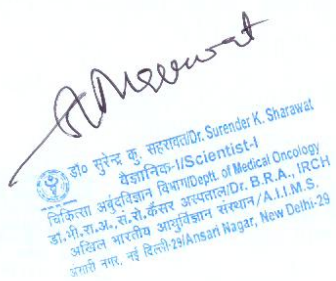 डॉ० सुरेन्द्र कु. सहरावत/Dr. Surender K. Sharawat
वैज्ञानिक-I/Scientist-I
चिकित्सा अर्बुदविज्ञान विभाग/Deptt. of Medical Oncology
डा.भी.रा.अ.,सं.रो.कैंसर अस्पताल/Dr. B.R.A., IRCH
अखिल भारतीय आयुर्विज्ञान संस्थान/A.I.I.M.S.
अंसारी नगर, नई दिल्ली-29/Ansari Nagar, New Delhi-29